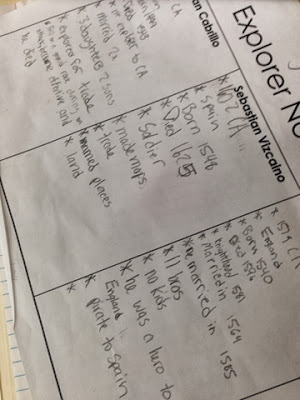 Explorer No
an Cabrillo
CA
to CA
* married 2x
* 3 daughters 2 sons
* explored for trade
he died
Sebastian Vizcaino
* 1602 CA
* Spain
* Born 1548
* Died 1625
* Soldier
* made maps
* trade
* named places
* land
* 1579 CA
* England
* Born 1540
* Died 1596
* Knighthood 1581
* Married in 1569
* remarried in 1585
* 11 bros
* no kids
* he was a hero to
England
* pirate to Spain